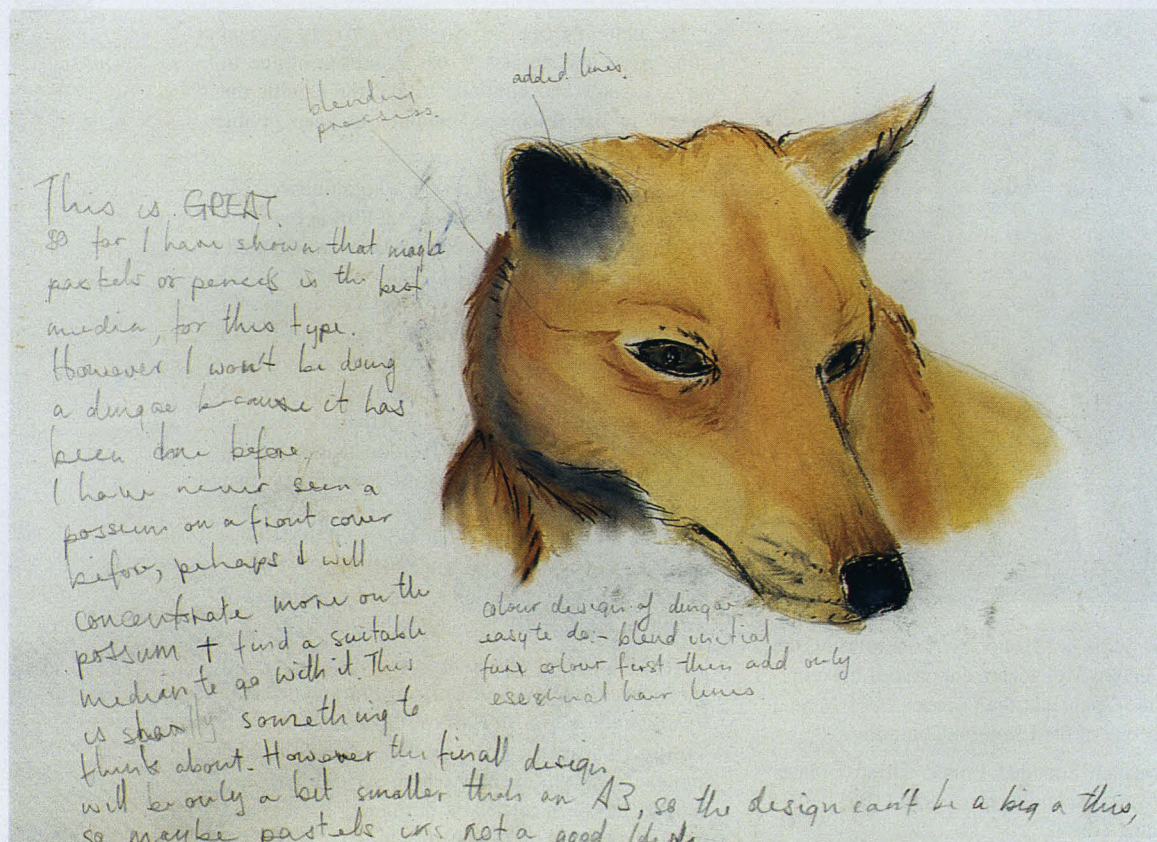 added lines.
blending
process.
This is GREAT
so far I have shown that maybe
pastels or pencels is the best
media, for this type.
However I won't be doing
a dingae because it has
been done before
I have never seen a
possum on a front cover
before, perhaps I will
concentrate more on the
possum + find a suitable
medium to go with it. This
is something to
think about. However the finall design
will be only a bit smaller than an A3, so the design can't be a big a this,
so maybe pastels is not a good
colour design of dingae
easy to do - blend initial
colour first then add only
hair lines